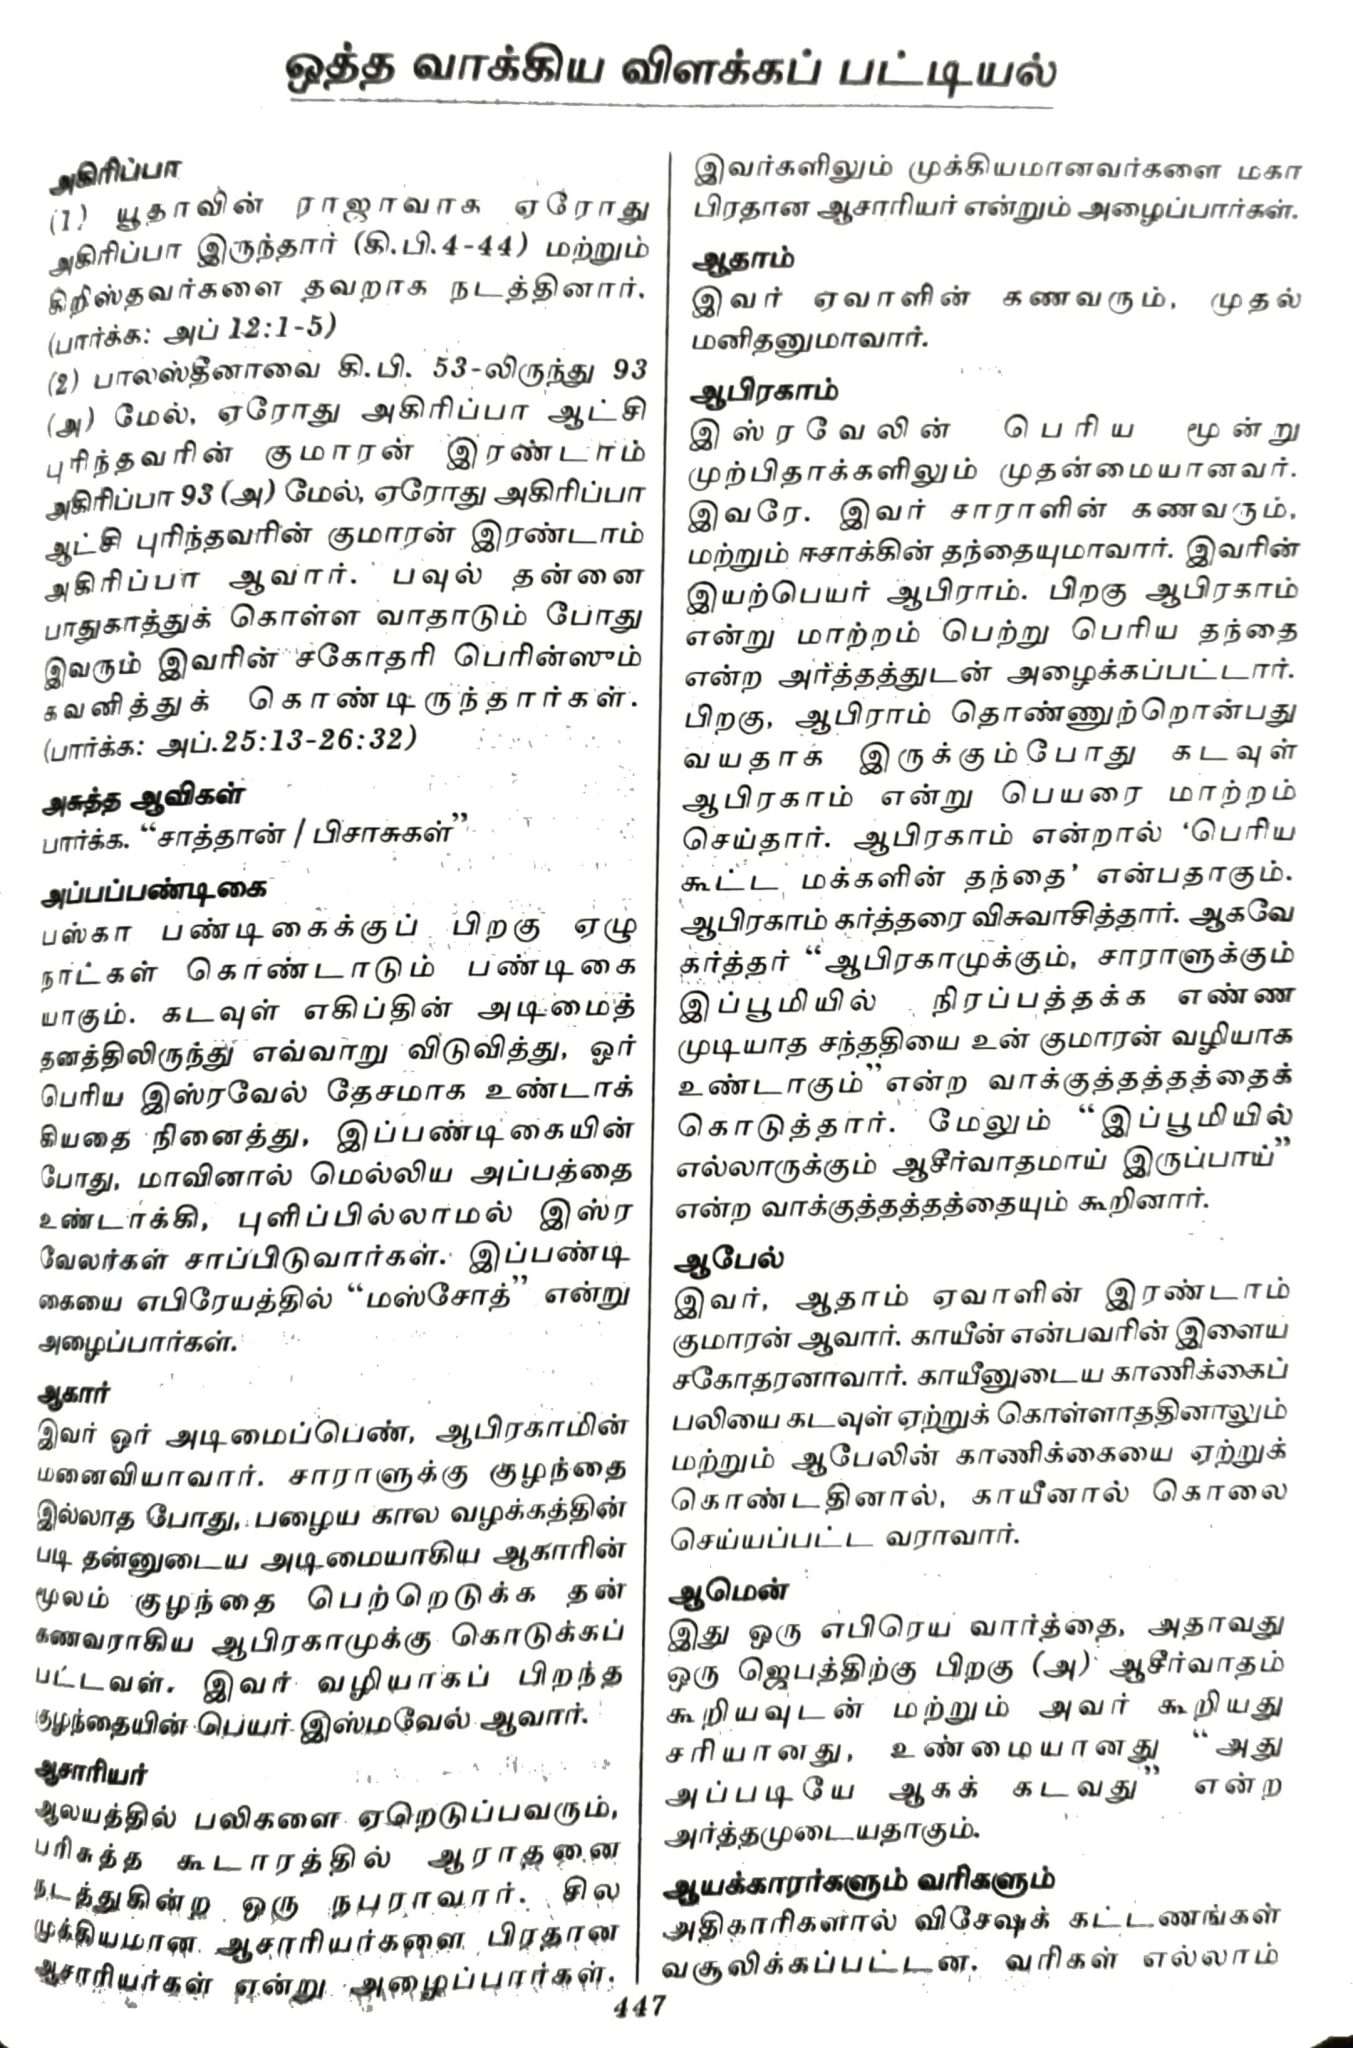 ஒத்த வாக்கிய விளக்கப் பட்டியல்
அகிரிப்பா
(1) யூதாவின் ராஜாவாக ஏரோது
அகிரிப்பா இருந்தார் (கி.பி.4-44) மற்றும்
கிறிஸ்தவர்களை தவறாக நடத்தினார்.
(பார்க்க: அப் 12:1-5)
(2) பாலஸ்தீனாவை கி.பி. 53-லிருந்து 93
(அ) மேல், ஏரோது அகிரிப்பா ஆட்சி
புரிந்தவரின் குமாரன் இரண்டாம்
அகிரிப்பா 93 (அ) மேல், ஏரோது அகிரிப்பா
ஆட்சி புரிந்தவரின் குமாரன் இரண்டாம்
அகிரிப்பா ஆவார். பவுல் தன்னை
பாதுகாத்துக் கொள்ள வாதாடும் போது
இவரும் இவரின் சகோதரி பெரின்ஸும்
கவனித்துக் கொண்டிருந்தார்கள்.
(பார்க்க: அப்.25:13-26:32)
அசுத்த ஆவிகள்
பார்க்க. “சாத்தான் / பிசாசுகள்”
அப்பப்பண்டிகை
பஸ்கா பண்டிகைக்குப் பிறகு ஏழு
நாட்கள் கொண்டாடும் பண்டிகை
யாகும். கடவுள் எகிப்தின் அடிமைத்
தனத்திலிருந்து எவ்வாறு விடுவித்து, ஓர்
பெரிய இஸ்ரவேல் தேசமாக உண்டாக்
கியதை நினைத்து, இப்பண்டிகையின்
போது, மாவினால் மெல்லிய அப்பத்தை
உண்டாக்கி, புளிப்பில்லாமல் இஸ்ர
வேலர்கள் சாப்பிடுவார்கள். இப்பண்டி
கையை எபிரேயத்தில் “மஸ்சோத்” என்று
அழைப்பார்கள்.
ஆகார்
இவர் ஓர் அடிமைப்பெண், ஆபிரகாமின்
மனைவியாவார். சாராளுக்கு குழந்தை
இல்லாத போது, பழைய கால வழக்கத்தின்
படி தன்னுடைய அடிமையாகிய ஆகாரின்
மூலம் குழந்தை பெற்றெடுக்க தன்
கணவராகிய ஆபிரகாமுக்கு கொடுக்கப்
பட்டவள். இவர் வழியாகப் பிறந்த
குழந்தையின் பெயர் இஸ்மவேல் ஆவார்.
ஆசாரியர்
ஆலயத்தில் பலிகளை ஏறெடுப்பவரும்,
பரிசுத்த கூடாரத்தில் ஆராதனை
நடத்துகின்ற ஒரு நபராவார். சில
முக்கியமான ஆசாரியர்களை பிரதான
ஆசாரியர்கள் என்று அழைப்பார்கள்.
இவர்களிலும் முக்கியமானவர்களை மகா
பிரதான ஆசாரியர் என்றும் அழைப்பார்கள்.
ஆதாம்
இவர் ஏவாளின் கணவரும், முதல்
மனிதனுமாவார்.
ஆபிரகாம்
இஸ்ரவேலின் பெரிய மூன்று
முற்பிதாக்களிலும் முதன்மையானவர்.
இவரே. இவர் சாராளின் கணவரும்,
மற்றும் ஈசாக்கின் தந்தையுமாவார். இவரின்
இயற்பெயர் ஆபிராம். பிறகு ஆபிரகாம்
என்று மாற்றம் பெற்று பெரிய தந்தை
என்ற அர்த்தத்துடன் அழைக்கப்பட்டார்.
பிறகு, ஆபிராம் தொண்ணுற்றொன்பது
வயதாக இருக்கும்போது கடவுள்
ஆபிரகாம் என்று பெயரை மாற்றம்
செய்தார். ஆபிரகாம் என்றால் ‘பெரிய
கூட்ட மக்களின் தந்தை’ என்பதாகும்.
ஆபிரகாம் கர்த்தரை விசுவாசித்தார். ஆகவே
கர்த்தர் “ஆபிரகாமுக்கும், சாராளுக்கும்
இப்பூமியில் நிரப்பத்தக்க எண்ண
முடியாத சந்ததியை உன் குமாரன் வழியாக
உண்டாகும்” என்ற வாக்குத்தத்தத்தைக்
கொடுத்தார். மேலும் “இப்பூமியில்
எல்லாருக்கும் ஆசீர்வாதமாய் இருப்பாய்”
என்ற வாக்குத்தத்தத்தையும் கூறினார்.
ஆபேல்
இவர், ஆதாம் ஏவாளின் இரண்டாம்
குமாரன் ஆவார். காயீன் என்பவரின் இளைய
சகோதரனாவார். காயீனுடைய காணிக்கைப்
பலியை கடவுள் ஏற்றுக் கொள்ளாததினாலும்
மற்றும் ஆபேலின் காணிக்கையை ஏற்றுக்
கொண்டதினால், காயீனால் கொலை
செய்யப்பட்ட வராவார்.
ஆமென்
இது ஒரு எபிரெய வார்த்தை, அதாவது
ஒரு ஜெபத்திற்கு பிறகு (அ) ஆசீர்வாதம்
கூறியவுடன் மற்றும் அவர் கூறியது
சரியானது, உண்மையானது “அது
அப்படியே ஆகக் கடவது” என்ற
அர்த்தமுடையதாகும்.
ஆயக்காரர்களும் வரிகளும்
அதிகாரிகளால் விசேஷக் கட்டணங்கள்
வசூலிக்கப்பட்டன. வரிகள் எல்லாம்
447